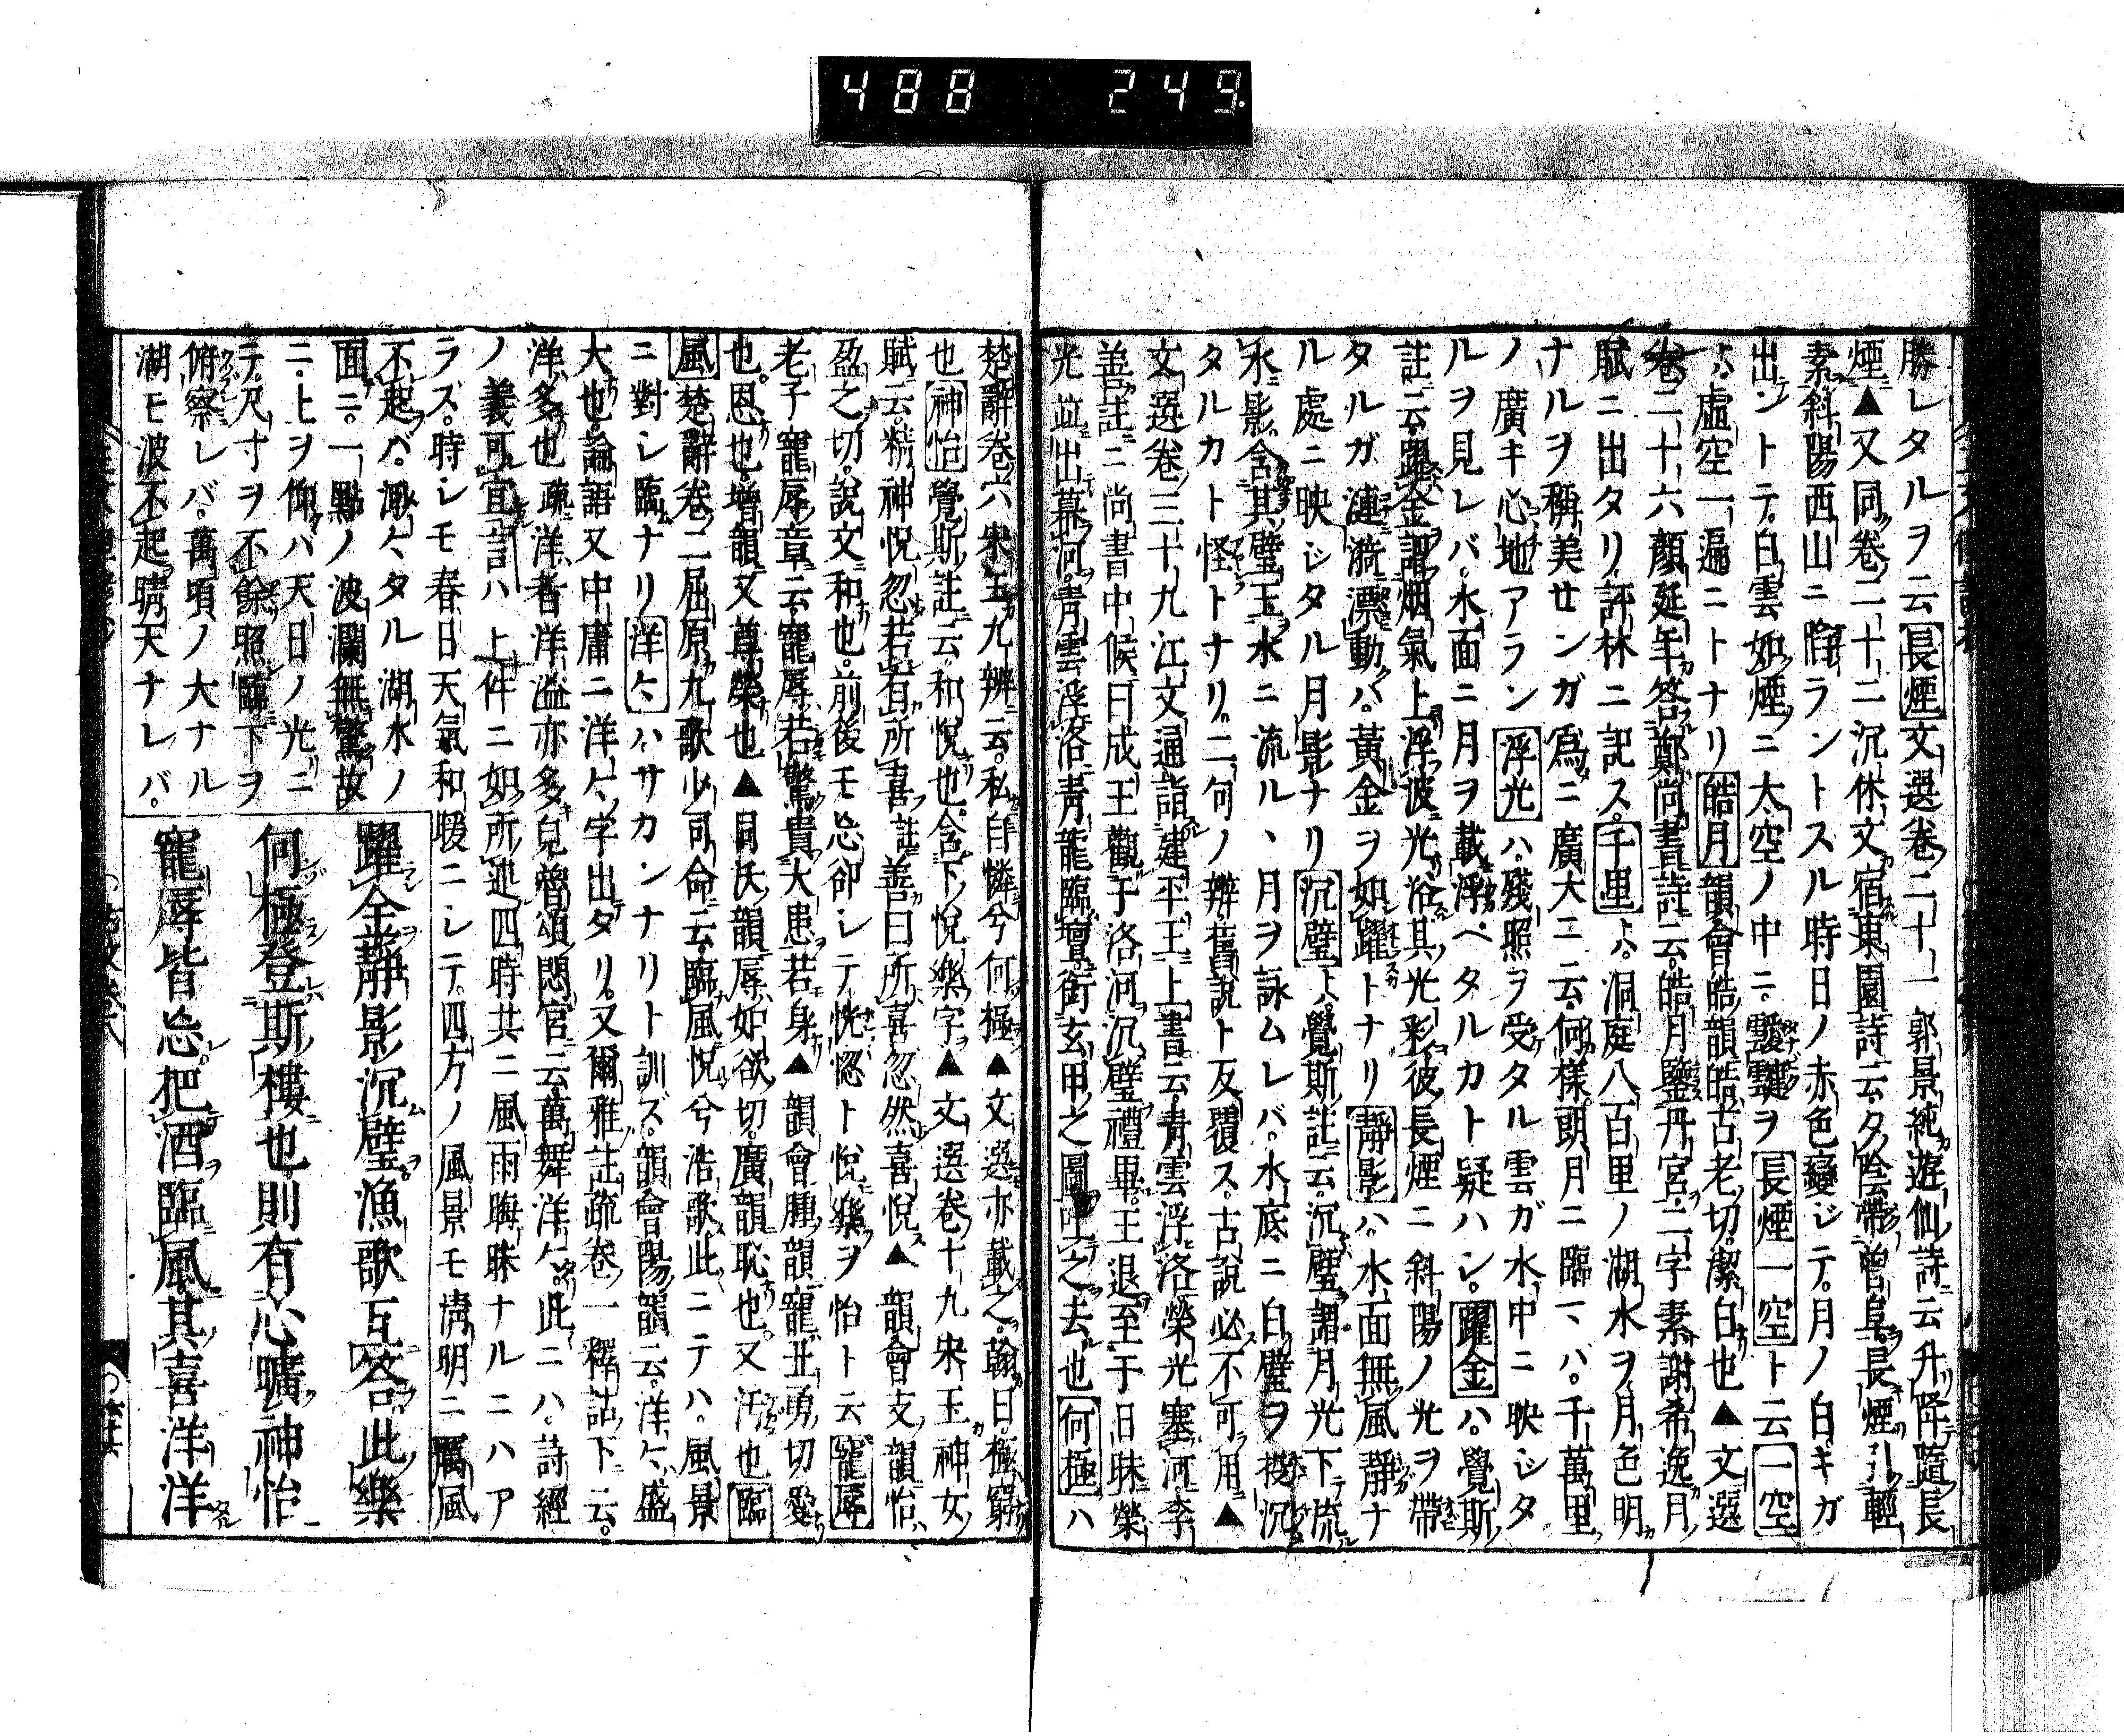 488 249
勝レタルヲ云長煙文選卷二十一郭景純遊仙詩云升降隨長
煙▲又同卷二十二沉休文宿東園詩云夕陰帶曾阜長煙引輕
素斜陽西山ニ隋ラントスル時日ノ赤色變ジテ月ノ白キガ
出ントテ白雲如煙ニ大空ノ中ニ靉靆ヲ長煙一空ト云一空
トハ虛空一遍ニトナリ皓月韻會皓韻皓古老切潔白也▲文選
卷二十六顏延年答鄭尚書詩云皓月鑒丹宮二字素謝希逸月
賦ニ出タリ評林ニ記ス千里トハ洞庭八百里ノ湖水ヲ月色明
ナルヲ稱美センガ爲ニ廣大ニ云何樣朗月ニ臨ハ千萬里
ノ廣キ心地アラン浮光ハ殘照ヲ受タル雲ガ水中ニ映シタ
ルヲ見レバ水面ニ月ヲ載浮ベタルカト疑ハン躍金ハ覺斯
註云躍金謂烟氣上浮波光浴其光彩彼長煙ニ斜陽ノ光ヲ帶
タルガ漣漪漂動バ黃金ヲ如躍トナリ靜影ハ水面無風靜ナ
ル處ニ映ジタル月影ナリ沉璧トハ覺斯註云沉璧謂月光下流
水影含其璧玉水ニ流ル、月ヲ詠ムレバ水底ニ白璧ヲ投沉
タルカト怪トナリ二句ノ辨舊說ト反覆ス古說必不可用▲
文選卷三十九江文通詣建平王上書云青雲浮洛榮光塞河李
善註ニ尚書中候曰成王觀于洛河沉璧禮畢王退至于日昧榮
光並出幕河青雲浮洛青龍臨壇銜玄甲之圖吐之去也何極ハ
楚辭卷六宋玉九辨云私自憐兮何極▲文選亦載之翰曰極窮
也神怡覺斯註云和悅也含下悅樂字▲文選卷十九宋玉神女
賦云精神怳忽若有所喜註善曰所喜忽然喜悅▲韻會支韻怡
盈之切說文和也前後モ忘卻シテ恍惚ト悅樂ヲ怡ト云寵辱
老子寵辱章云寵辱若驚貴大患若身▲韻會腫韻寵丑勇切愛
也恩也增韻又尊榮也▲同沃韻辱如欲切廣韻恥也又汚也臨
風楚辭卷二屈原九歌少司命云臨風怳兮浩歌此ニテハ風景
ニ對シ臨ナリ洋々ハサカンナリト訓ズ韻會陽韻云洋々盛
大也論語又中庸ニ洋々字出タリ又爾雅註疏卷一釋詁下云
洋多也疏洋者洋溢亦多皃魯頌閟宮云萬舞洋々此ニハ詩經
ノ義可宜言ハ上件ニ如所述四時共ニ風雨晦昧ナルニハア
ラズ時シモ春日天氣和暖ニシテ四方ノ風景モ淸明ニ厲風
不起バ溆々タル湖水ノ
面ニ一點ノ波瀾無驚故
ニ上ヲ仰ハ天日ノ光ニ
テ尺寸ヲ不餘照臨下ヲ
俯察レバ萬頃ノ大ナル
湖モ波不起晴天ナレバ
躍金靜影沉璧漁歌互答此樂
何極登斯樓也則有心曠神怡
寵辱皆忘把酒臨風其喜洋洋